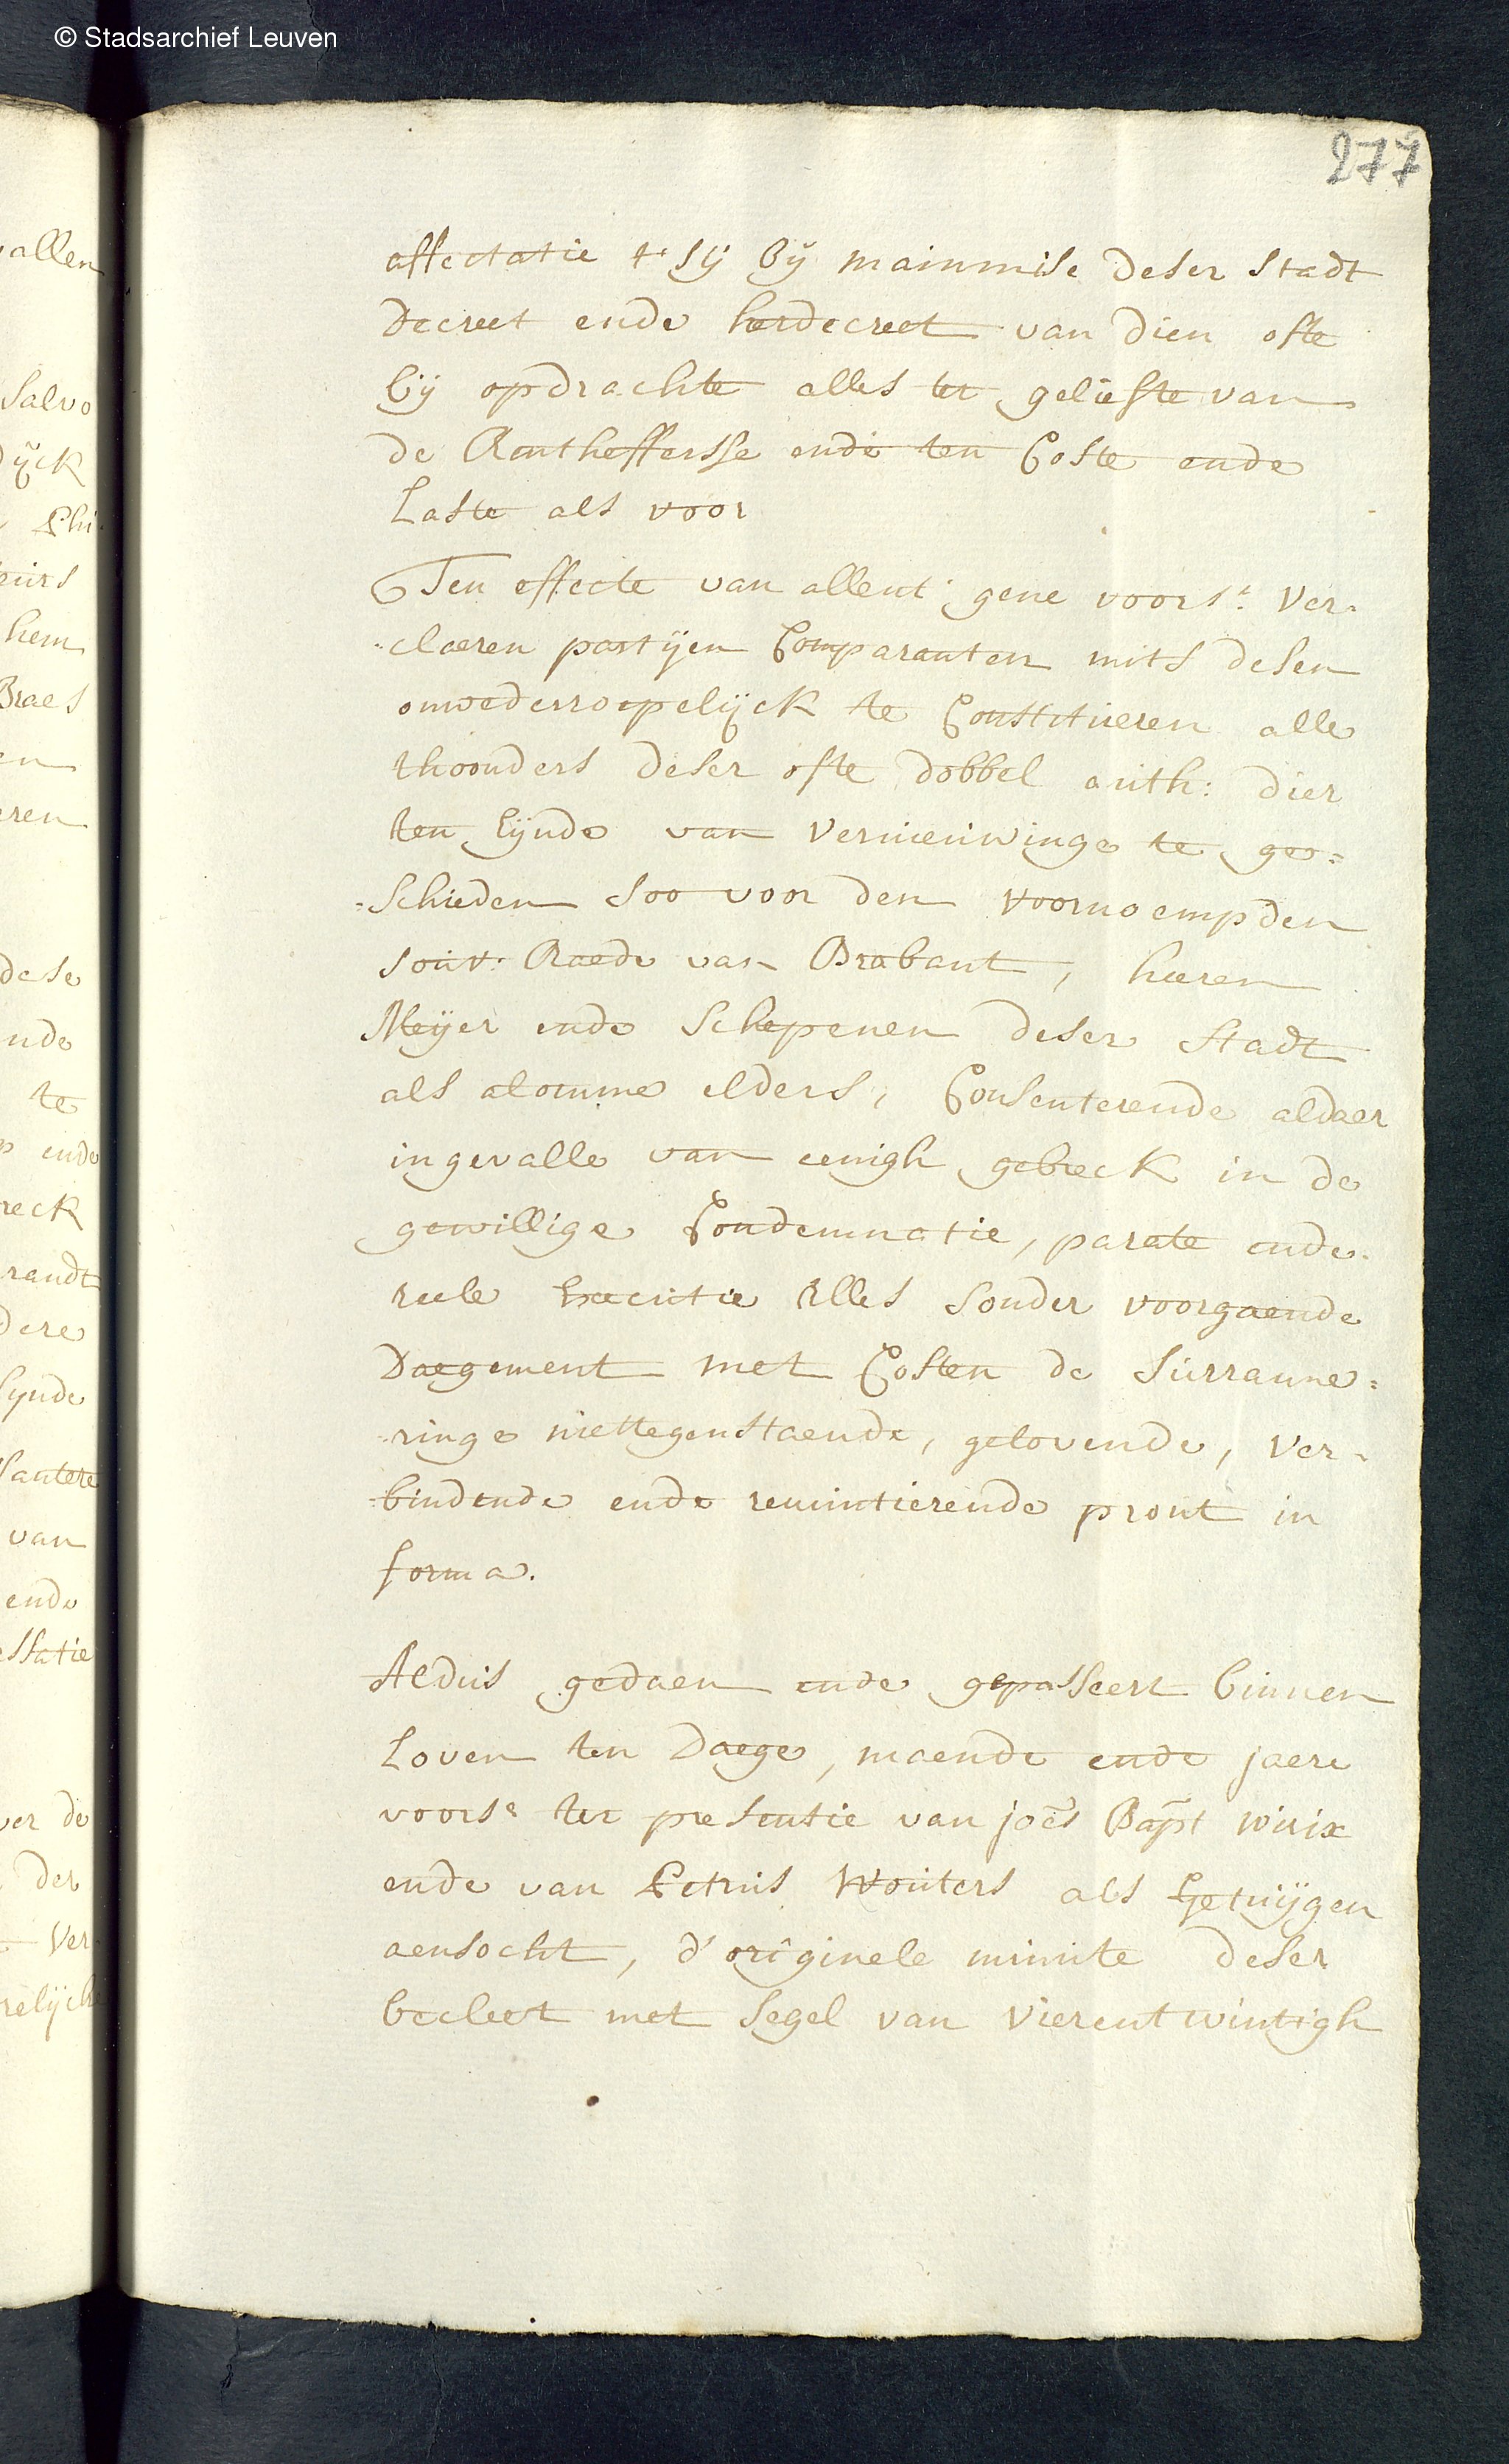 © Stadsarchief Leuven
277
allen
Salvo
dijck
Phi
eurs
hem
Braes
en
eren
dese
ende
te
ende
reck
randt
dere
Eynde
santere
van
ende
essatie
ver de
der
Ver
relijck
affectatie t' sij bij mainmise deser stadt
decreet ende herdecreet van dien ofte
bij opdrachte alles ter geliefte van
de Rentheffersse ende ten Coste ende
Laste als voor
Ten effecte van allent' gene voorst. Ver-
-claeren partijen Comparanten mits desen
onwederroepelijck te Constitueren alle
thoonders deser ofte dobbel auth: dier
ten Eynde van Vernieuwinge te ge=
=schieden soo voor den voornoempden
souv: Raede van Brabant, heeren
Meijer ende Schepenen deser Stadt
als alomme elders, Consenterende aldaer
ingevalle van eenigh gebreck in de
gewillige Condemnatie, parate ende
reele Executie alles sonder voorgaende
Daegement met Costen de surranne=
-ringe niettegenstaende, gelovende, Ver-
-bindende ende renuntierende prout in
forma.
Aldus gedaen ende gepasseert binnen
Loven ten Daege, maende ende jaere
voors. ter presentie van joẽs Bapt Wuix
ende van Petrus Wouters als Getuijgen
aensocht, d' originele minute deser
becleet met segel van vierentwintigh